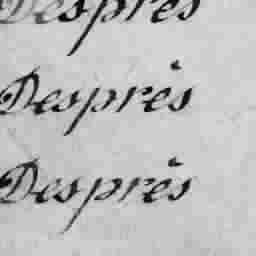 Desprès
Desprès
Desprès